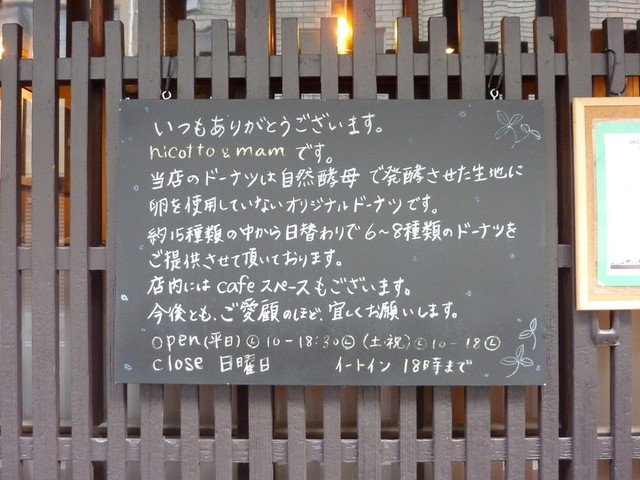 いつもありがとうございます。
nicotto & mam です。
当店のドーナツは自然酵母で発酵させた生地に
卵を使用していないオリジナルドーナツです。
約15種類の中から日替わりで6〜8種類のドーナツを
ご提供させて頂いております。
店内には cafe スペースもございます。
今後とも、ご愛顧のほど、宜しくお願いします。
open(平日) 10-18:30 (土・祝) 10-18
close 日曜日 イートイン 18時まで